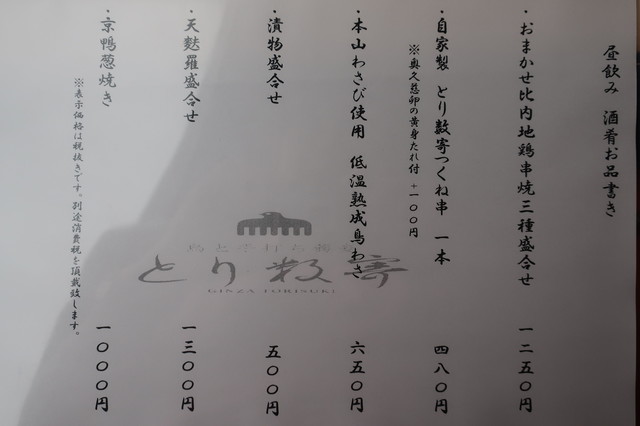 昼飲み 酒肴お品書き
・おまかせ比内地鶏串焼三種盛合せ 一二五〇円
・自家製 とり数寄つくね串 一本 四八〇円
※奥久慈卵の黄身たれ付 +一〇〇円
・本山わさび使用 低温熟成鳥わさ 六五〇円
・漬物盛合せ 五〇〇円
・天麩羅盛合せ 一三〇〇円
・京鴨葱焼き 一〇〇〇円
※表示価格は税抜きです。別途消費税を頂戴致します。
とり数寄
GINZA TORISUKI